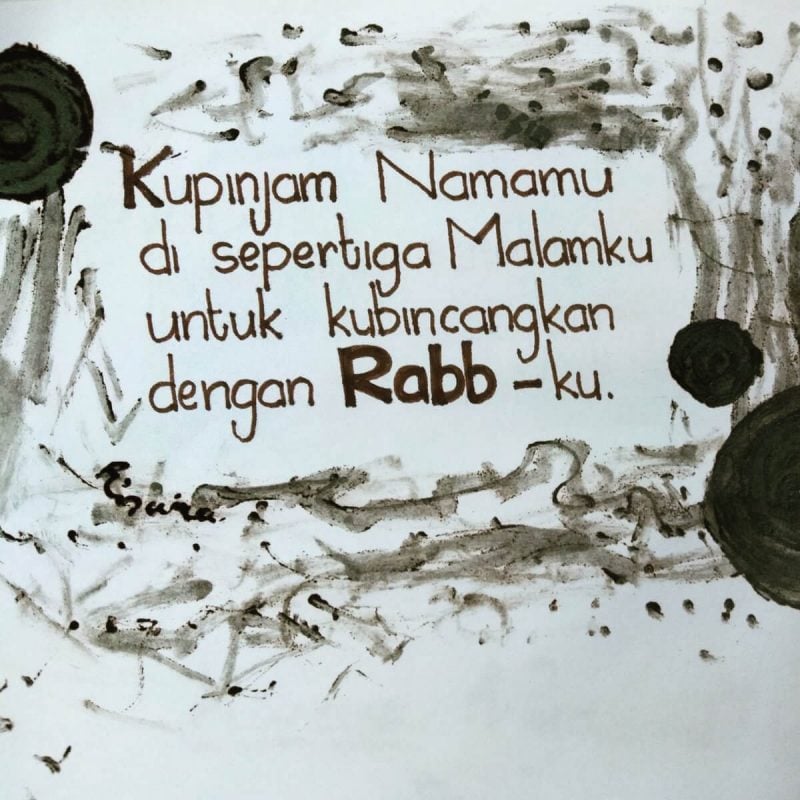 Kupinjam Namamu
di sepertiga Malamku
untuk kubincangkan
dengan Rabb-ku.